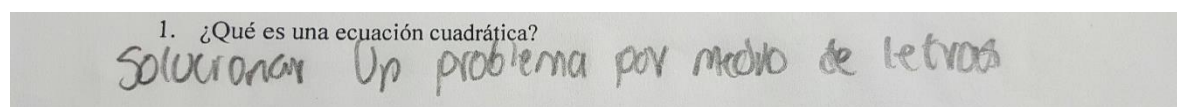 1. ¿Qué es una ecuación cuadrática?
Solucionar Un problema por medio de letras